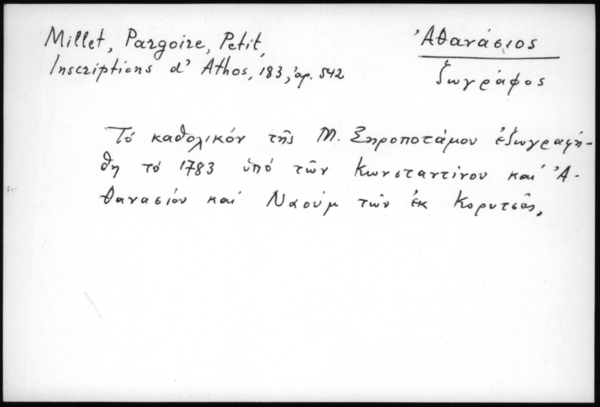 Millet, Pargoire, Petit,
Inscriptions d' Athos, 183, ἀρ. 542
Ἀθανάσιος
ζωγράφος
Τό καθολικόν τῆς Μ. Ξηροποτάμου ἐζωγραφή-
θη τό 1783 ὑπό τῶν Κωνσταντίνου καί Ἀ-
θανασίου καί Ναούμ τῶν ἐκ Κορυτσᾶς.